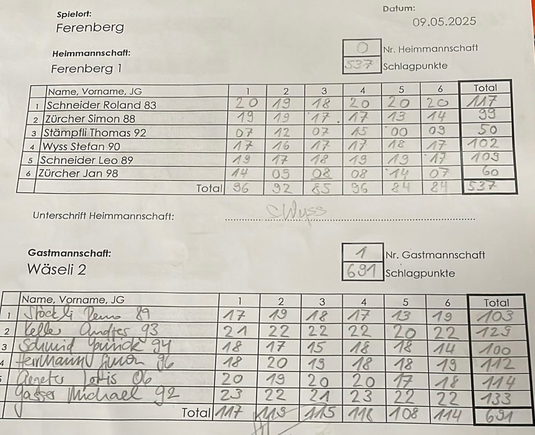 Spielort:
Ferenberg
Datum:
09.05.2025
Heimmannschaft:
Ferenberg 1
0 Nr. Heimmannschaft
537 Schlagpunkte
Name, Vorname, JG 1 2 3 4 5 6 Total
1 Schneider Roland 83 20 19 18 20 20 20 117
2 Zürcher Simon 88 19 19 17 17 13 14 99
3 Stämpfli Thomas 92 07 12 07 15 00 09 50
4 Wyss Stefan 90 17 16 17 17 18 17 102
5 Schneider Leo 89 19 17 18 19 19 17 109
6 Zürcher Jan 98 14 09 08 08 14 07 60
Total 96 92 85 96 84 84 537
Unterschrift Heimmannschaft: C Wyss
Gastmannschaft:
Wäseli 2
1 Nr. Gastmannschaft
691 Schlagpunkte
Name, Vorname, JG 1 2 3 4 5 6 Total
1 Stöckli Remo 89 17 19 18 17 13 19 103
2 Keller Andres 93 21 22 22 22 20 22 129
3 Schmid 94 18 17 15 18 18 14 100
4 Herrmann Simon 96 18 20 19 18 18 19 112
06 20 19 20 20 17 18 114
Gasser Michael 92 23 22 21 23 22 22 133
Total 117 119 115 118 108 114 691